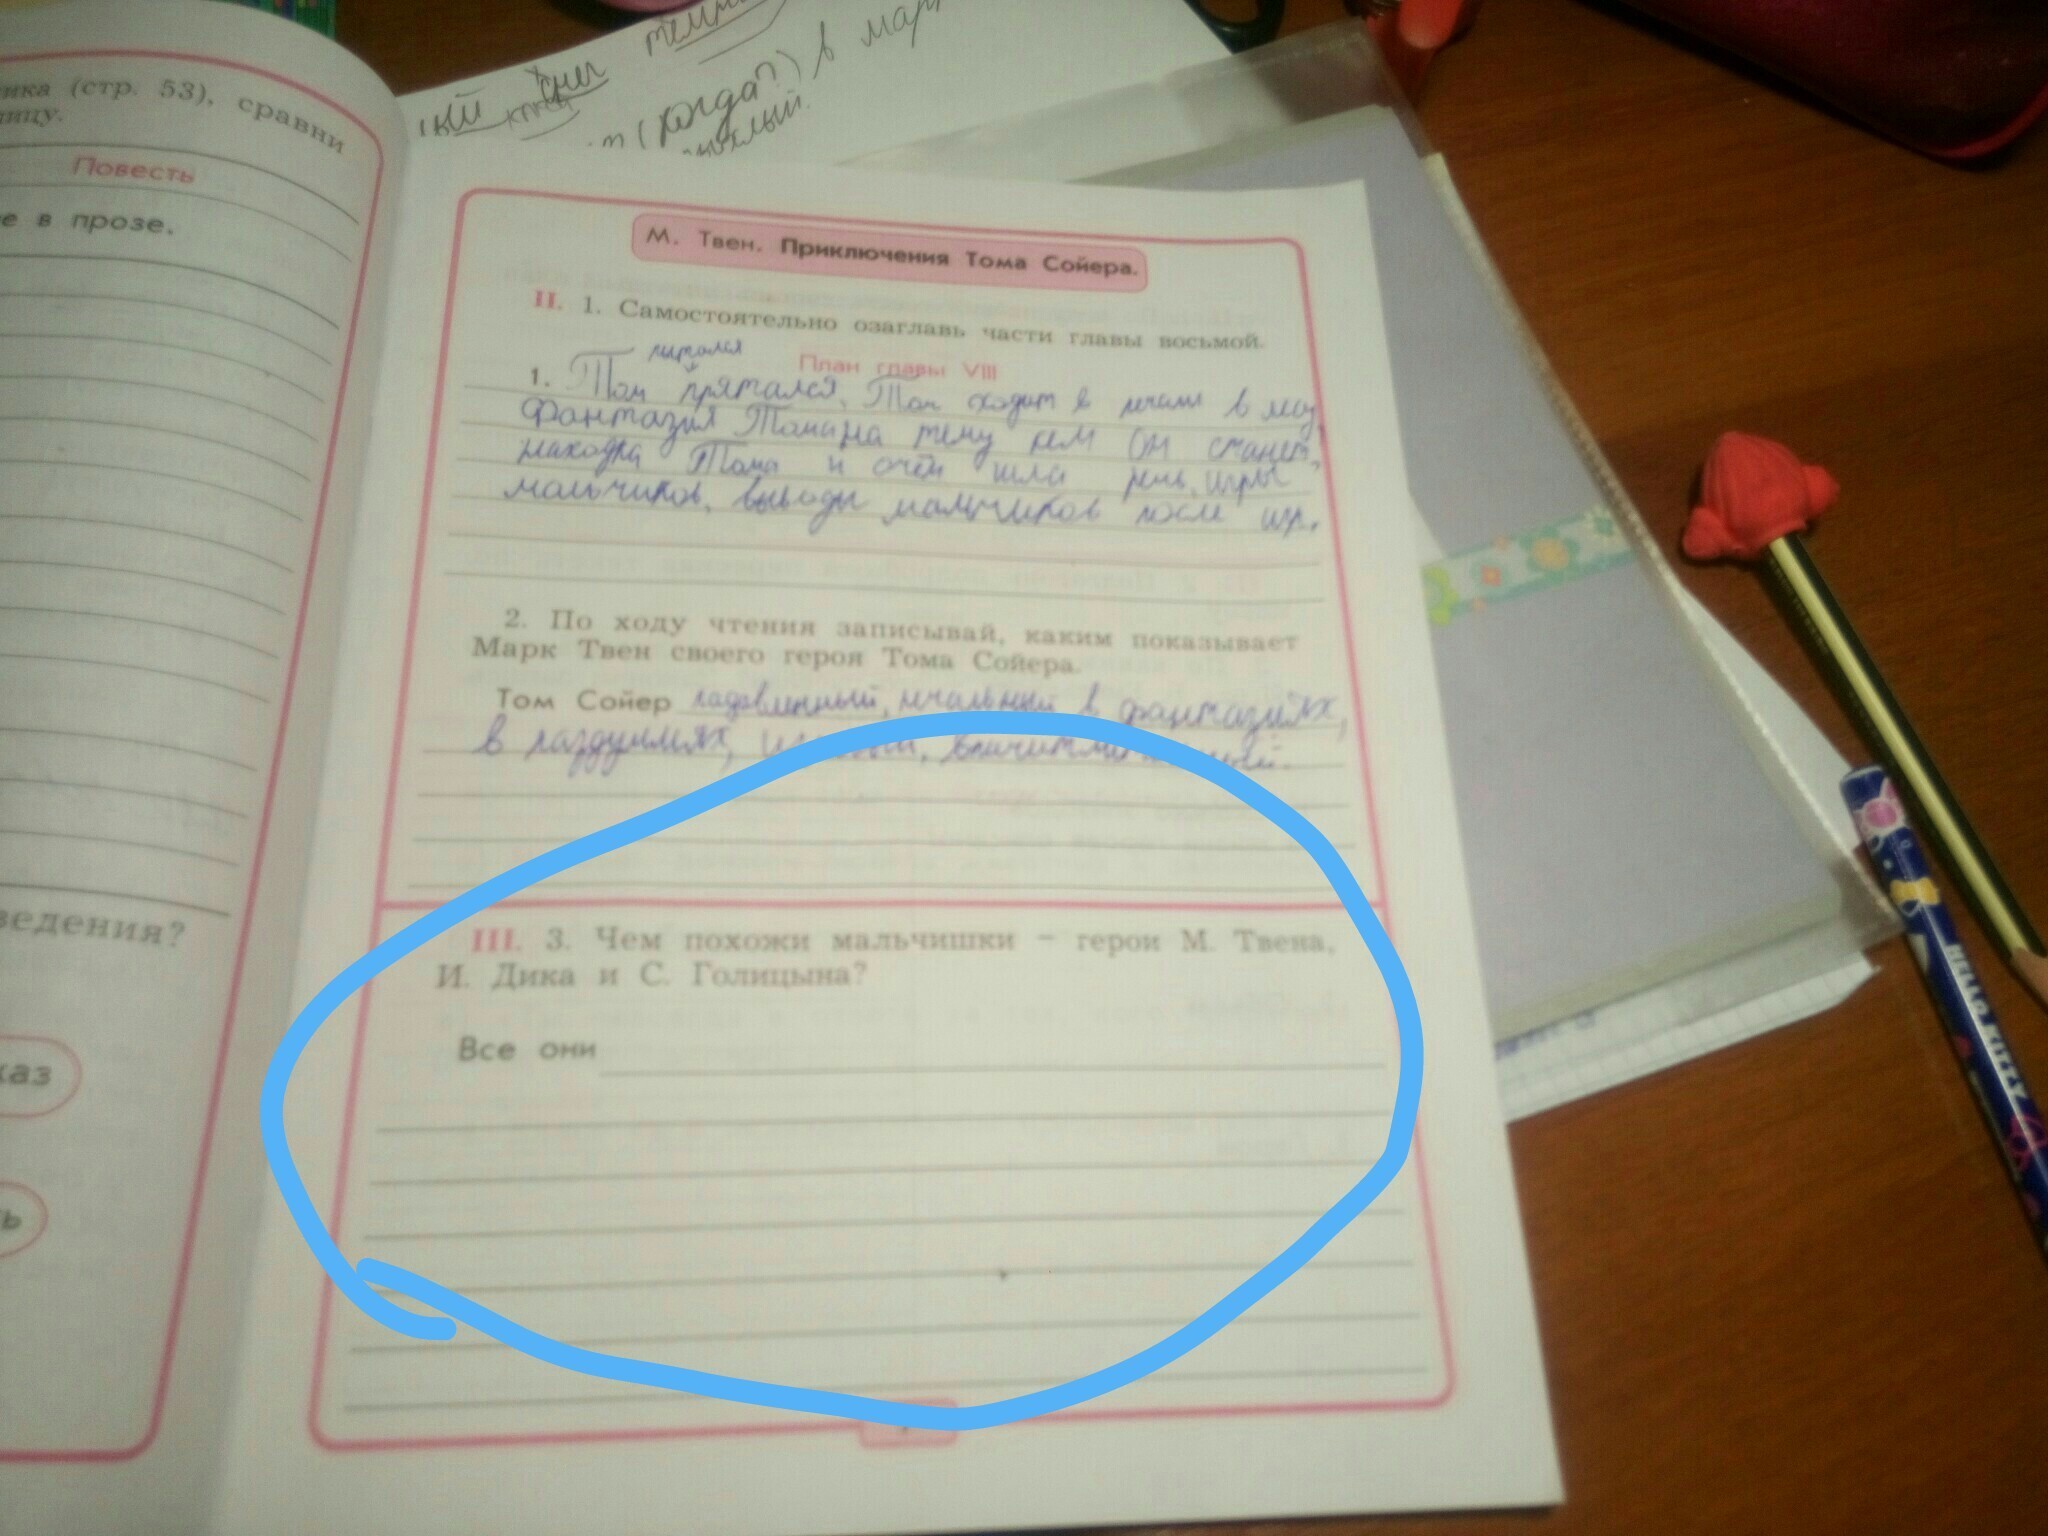 ика (стр. 53), сравни
ницу.
Повесть
е в прозе.
ведения?
каз
ь
ый снег
(когда?) в мар
М. Твен. Приключения Тома Сойера.
II. 1. Самостоятельно озаглавь части главы восьмой.
План главы VIII
пытался
1. Том прятался, Том сходит в
фантазия Тома на тему кем он станет,
находка Тома и о чём шла речь, игры
мальчиков, выводы мальчиков после игр.
2. По ходу чтения записывай, каким показывает
Марк Твен своего героя Тома Сойера.
Том Сойер подавленный, печальный в фантазиях,
в раздумьях,
III. 3. Чем похожи мальчишки – герои М. Твена,
И. Дика и С. Голицына?
Все они
HELLO KITTY